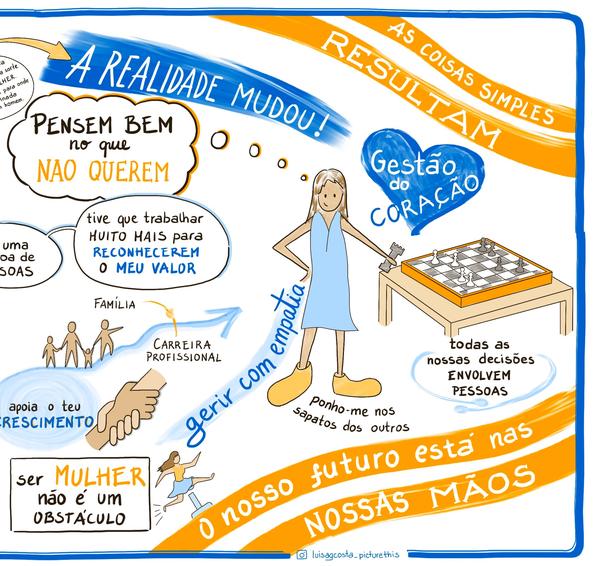 A REALIDADE MUDOU!
AS COISAS SIMPLES
RESULTAM
sorte
para onde
nada
homem.
PENSEM BEM
no que
NAO QUEREM
Gestão
do
CORAÇÃO
uma
oa de
SOAS
tive que trabalhar
MUITO MAIS para
RECONHECEREM
O MEU VALOR
FAMÍLIA
CARREIRA
PROFISSIONAL
gerir com empatia
todas as
nossas decisões
ENVOLVEM
PESSOAS
apoia o teu
CRESCIMENTO
ponho-me nos
sapatos dos outros
ser MULHER
não é um
OBSTÁCULO
O nosso futuro está nas
NOSSAS MÃOS
luisagcosta_picturethis